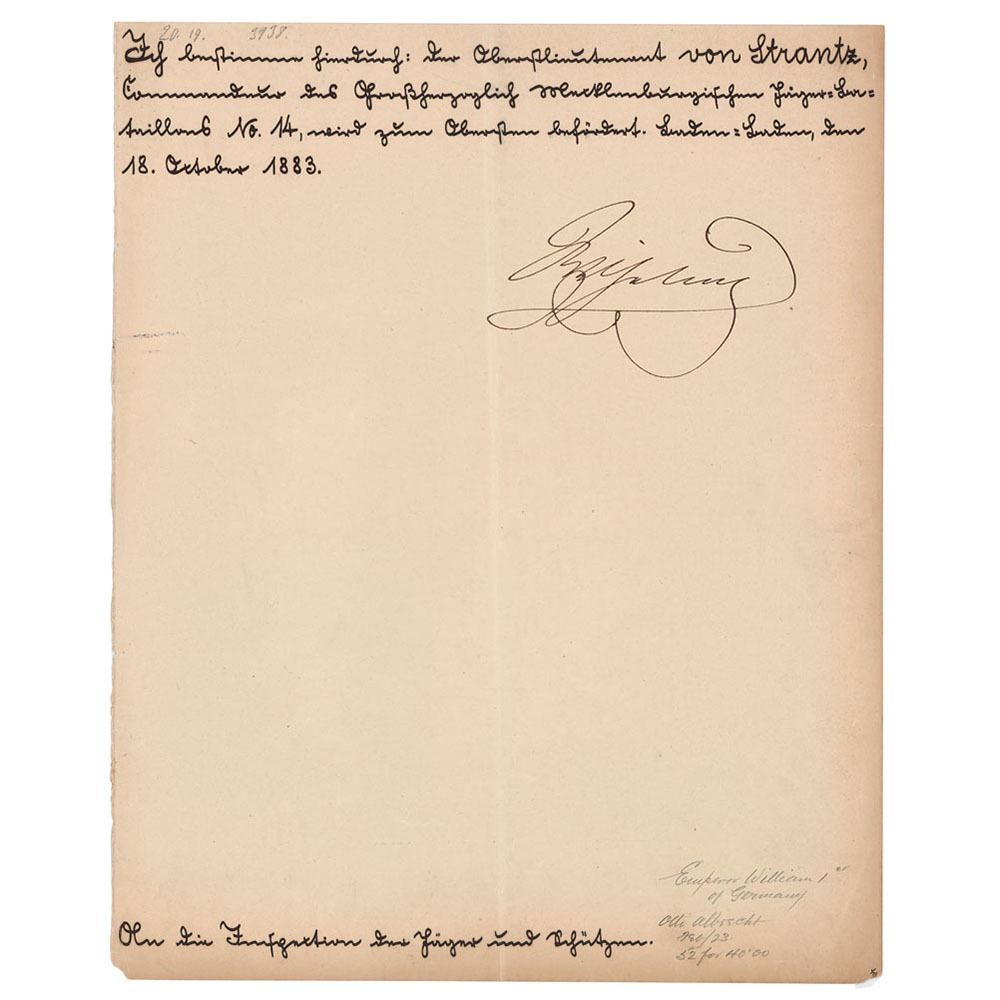 20. 19. 3938.
Ich bestimme hierdurch: der Oberstlieutenant von Strantz,
Commandeur des Großherzoglich Mecklenburgischen Jäger-Ba-
taillons No. 14, wird zum Obersten befördert. Baden-Baden, den
18. October 1883.
Wilhelm
Emperor William 1er
of Germany
Otto Albrecht
52 for 40'00
An die Inspection der Jäger und Schützen.